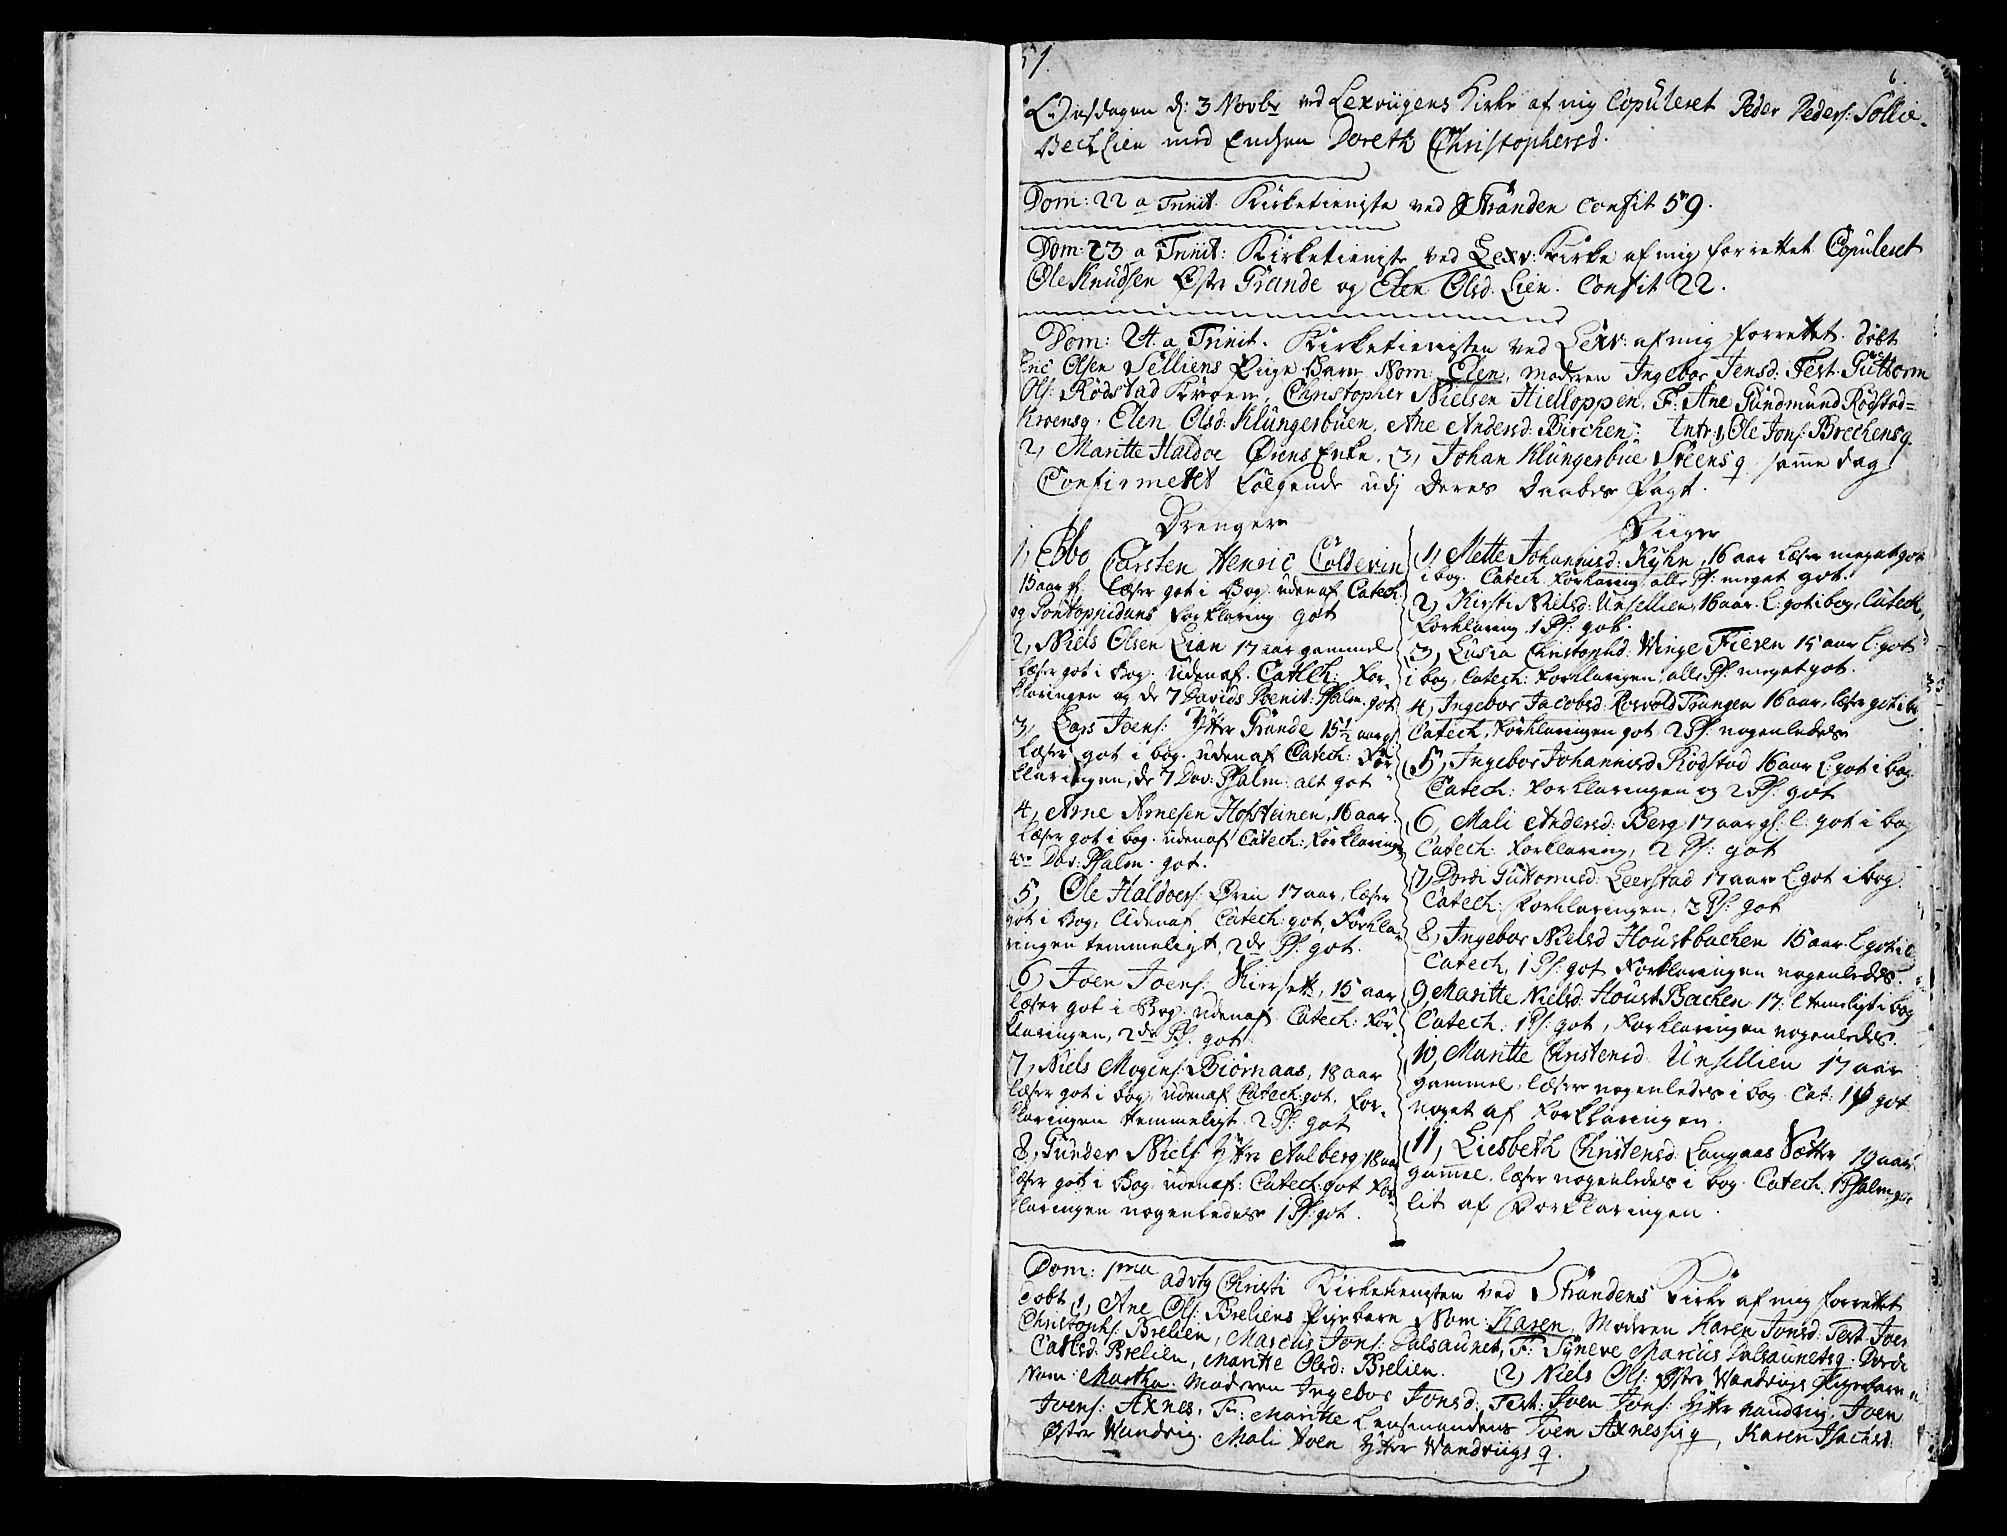 51.
6.
Onsdagen d: 3 Novbr ved Lexviigens Kirke af mig Copuleret Peder Peders: Sollie-
Bechlien med Enchen Doreth Christophersd.
Dom: 22 a Trinit: Kirketieniste ved Stranden Confit 59.
Dom: 23 a Trinit: Kirketieniste ved Lexv: Kirke af mig forrettet Copuleret
Ole Knudsen Østr Grande og Elen Olsd. Lien. Confit 22.
Dom: 24. a Trinit. Kirketienisten ved Lexv: af mig forrettet. døbt
Eric Olsen Selliens Pige Barn Nom: Elen, Moderen Ingebor Jensd: Test. Guttorm
Ols: Rødstad Kroen, Christopher Nielsen Hielloppen. F: Ane Gundmund Rødstad=
Kroensq. Elen Olsd: Klungerbuen, Ane Andersd: Birchen. Intr: 1, Ole Jons: Brechensq.
2, Maritte Haldoe Ørens Enke. 3, Johan Klungerbue Steensq. same dag
Confirmeret følgende udj Deres Daabes Pagt.
Drenger
1, Ebbe Carsten Henric Colderin
15 aar gl. læser got i Bog. udenaf Catech:
og Pontoppidans Forklaring got
2, Niels Olsen Lian 17 aar gammel
læser got i Bog. Udenaf. Catech: For-
klaringen og de 7 Davids Poenit: Psalm. got
3, Lars Joens: Ytter Grande 15½ aar gl.
læser got i bog. udenaf Catech: For-
klaringen, de 7 Dav: Psalm: alt got
4, Arne Arnesen Hofsteinen, 16 aar.
læser got i bog. udenaf Catech: Forklaring
4re Dav: Psalm. got.
5, Ole Haldoers: Øren 17 aar, læser
got i Bog, Udenaf. Catech: got, Forkla-
ringen temmeligt, 2de Ps: got.
6, Joen Joens: Kierset, 15 aar
læser got i Bog. udenaf Catech: For-
klaringen, 2de Ps. got
7, Niels Mogens: Biørnaas, 18 aar
læser got i bog, udenaf Catech: got, For-
klaringen temmeligt 2 Ps: got
8, Gunder Niels: Ytter Aalberg 18 aar
læser got i Bog. udenaf: Catech: got For-
klaringen nogenledes 1 Ps: got.
Piiger
1, Mette Johannisd: Kyhn, 16 aar læser meget got
i bog. Catech Forklaring alle Ps: meget got.
2, Kirsti Nielsd: Unsellien, 16 aar. l: got i bog, Catech,
Forklaring 1 Ps: got.
3, Lusia Christophd: Winge Fieren 15 aar l: got
i bog, Catech: Forklaringen, alle Ps: meget got.
4, Ingebor Jacobsd: Rosvold Trangen 16 aar, læser got i bog
Catech. Forklaringen got 2 Ps: nogenledes
5, Ingebor Johannisd Rødstad 16 aar l: got i bog.
Catech: Forklaringen og 2 Ps: got
6, Mali Andersd: Berg 17 aar gl: l: got i bog
Catech: Forklaring, 2 Ps: got
7, Dordi Guttormsd: Leerstad 17 aar l: got i bog:
Catech: Forklaringen, 3 Ps: got
8, Ingebor Nielsd Houstbachen 15 aar. l got i b:
Catech, 1 Ps: got Forklaringen nogenledes.
9, Maritte Nielsd: Houst Bachen 17. l temeligt i bog
Catech: 1 Ps: got, Forklaringen nogenledes.
10, Maritte Christensd: Unsellien 17 aar
gammel, læser nogenledes i bog. Cat: 1 Ps got
noget af Forklaringen.
11, Liesbeth Christensd. Langaas Sætter 19 aar
gamel. læser nogenledes i bog. Catech. 1 Psalm got
lit af Forklaringen.
Dom: 1ma advtq Christi Kirketienisten ved Strandens Kirke af mig forrettet
døbt 1, Ane Ols: Breliens Pigebarn Nom: Karen, Moderen Karen Jonsd: Test. Joen
Christophs: Brelien, Marcus Jons: Dalsaunet, F: Syneve Marcus Dalsaunetsq: Dordi
Carlsd: Brelien, Maritte Olsd: Brelien. 2, Niels Ols: Øster Wandvigs Pigebarn
Nom: Martha. Moderen Ingebor Jonsd: Test: Joen Jons: Ytter Vandvig, Joen
Joens: Axnes, F: Maritte Lensmandens Joen Axnessiq, Karen Isachsd:
Øster Wandvig. Mali Joen Ytter Wandviigs q.